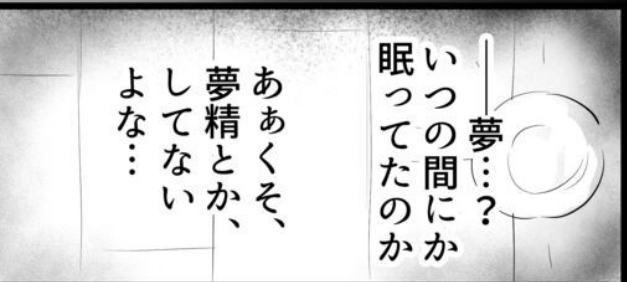 ――夢…？
いつの間にか
眠ってたのか
あぁくそ、
夢精とか、
してない
よな…